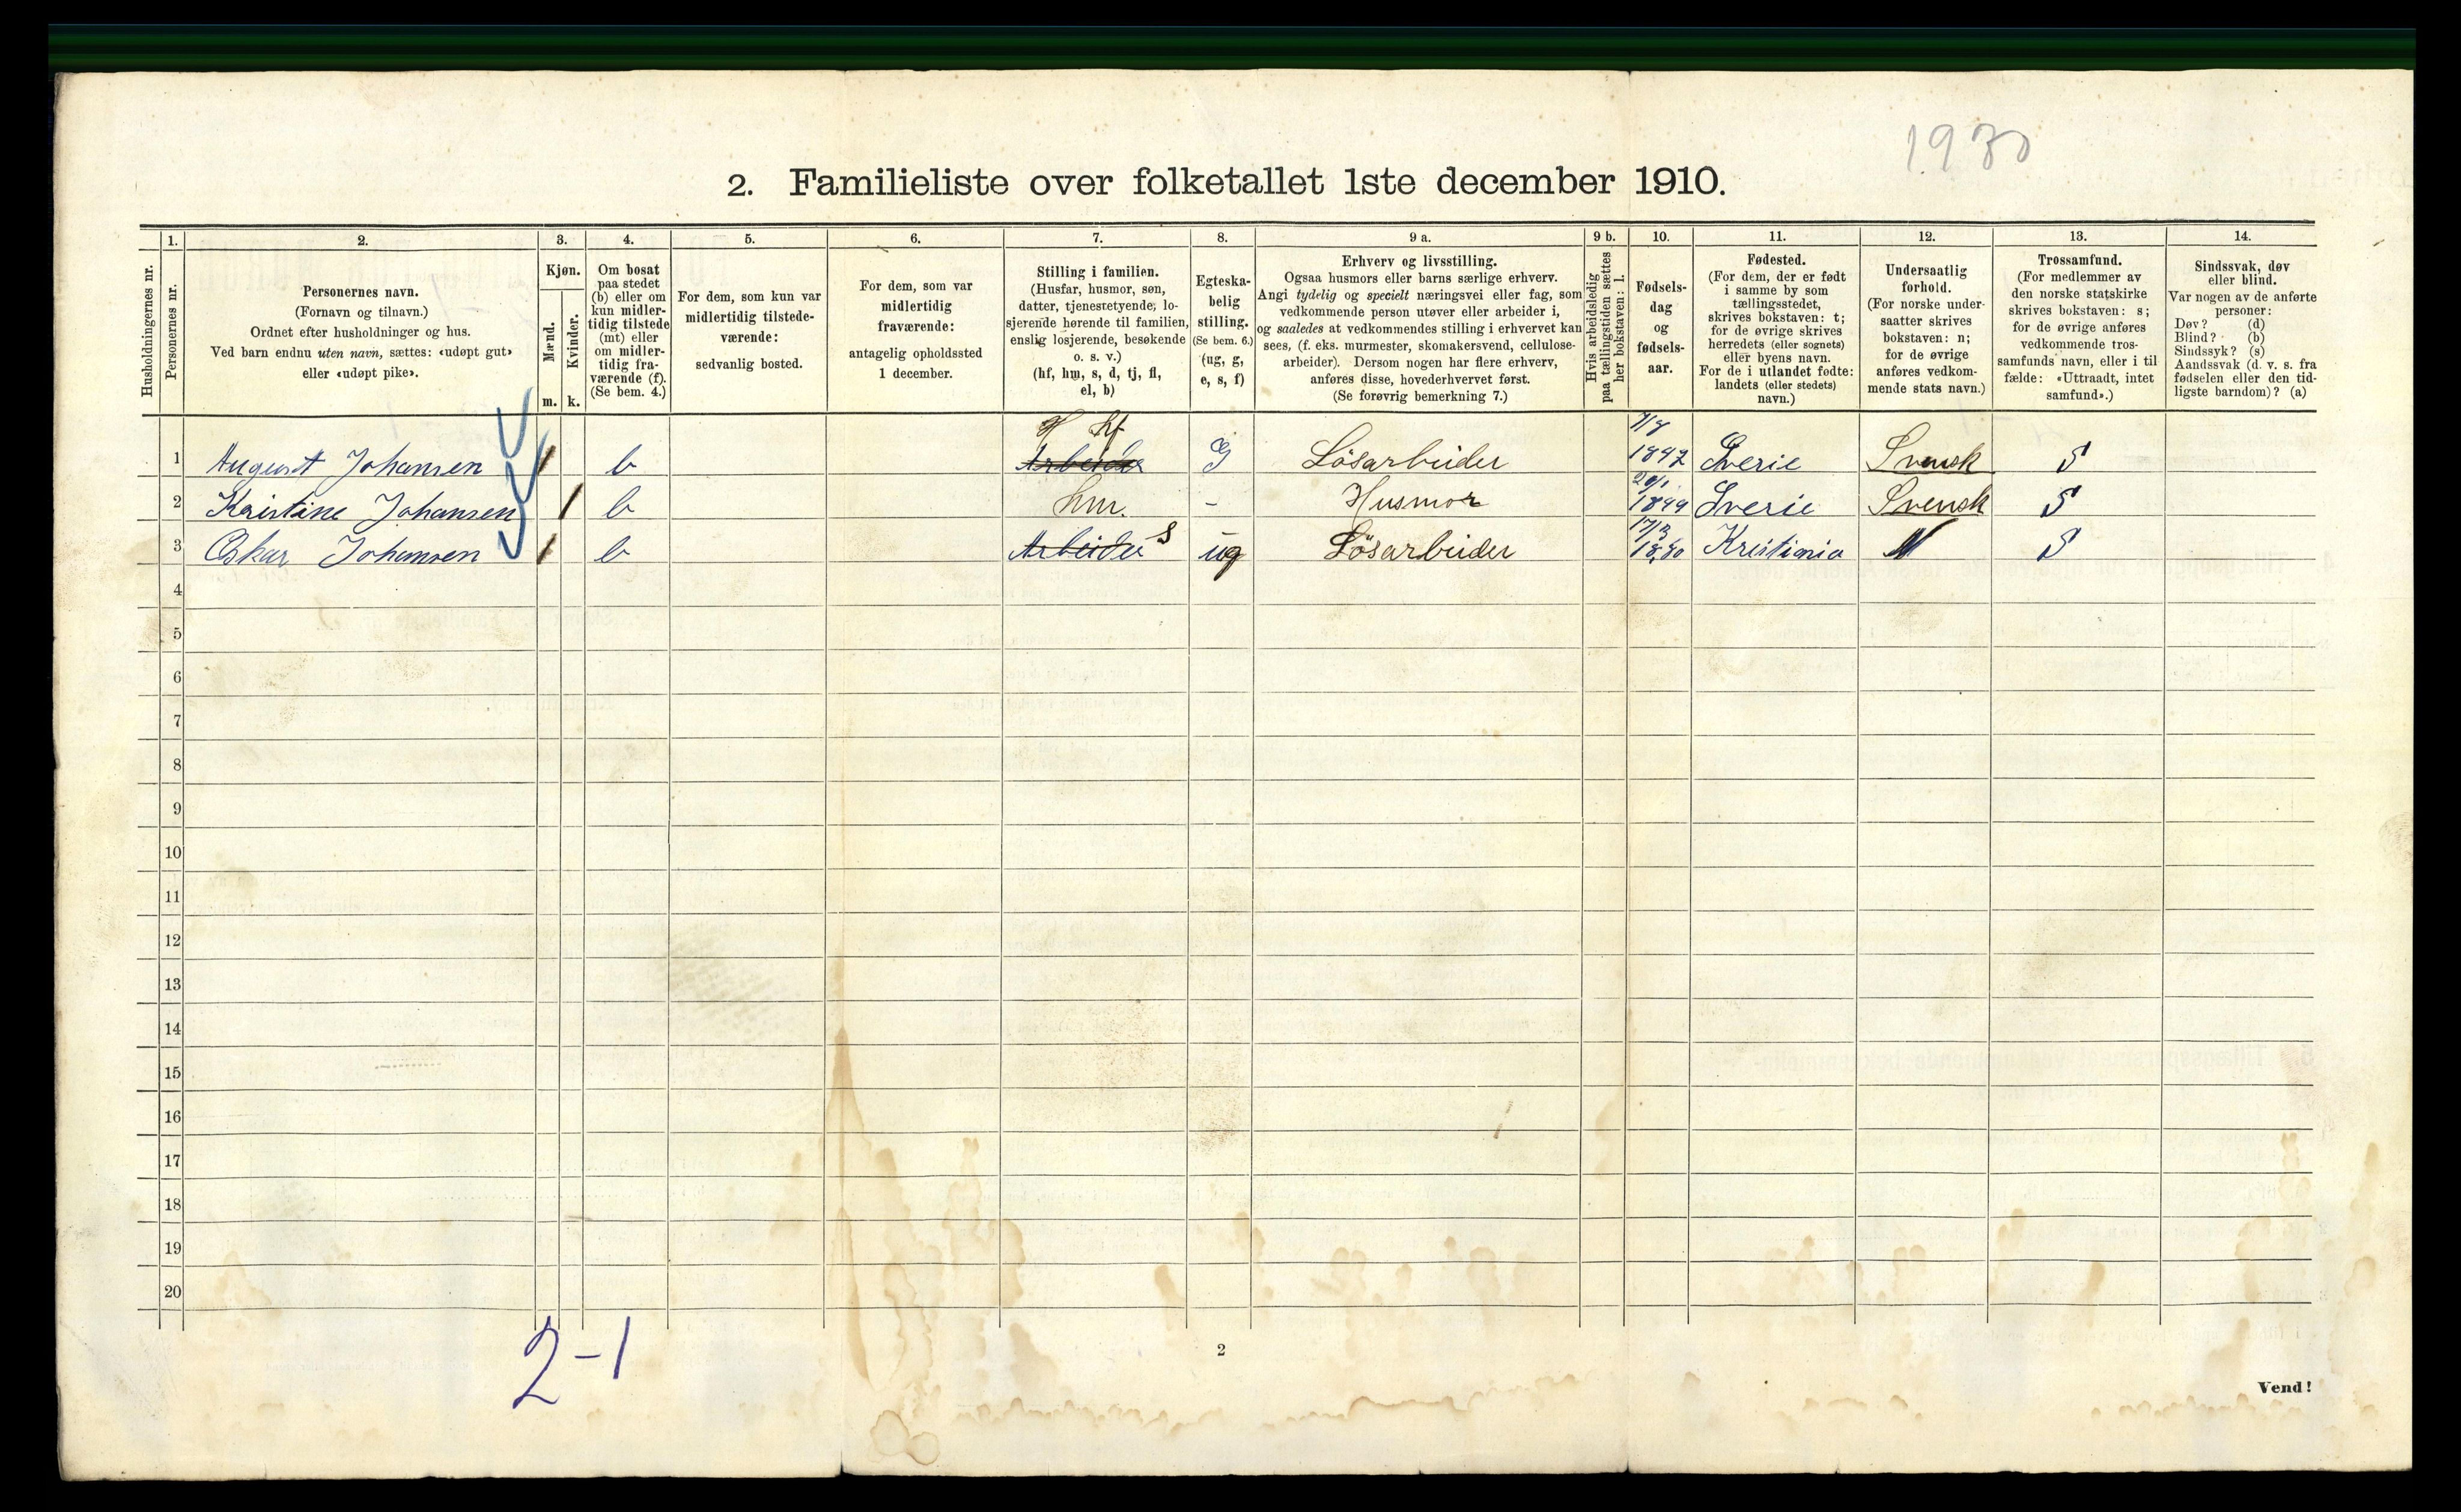 1930
2. Familieliste over folketallet 1ste december 1910.
1. 2. 3. 4. 5. 6. 7. 8. 9 a. 9 b. 10. 11. 12. 13. 14.
Husholdningernes nr.
Personernes nr.
Personernes navn.
(Fornavn og tilnavn.)
Ordnet efter husholdninger og hus.
Ved barn endnu uten navn, sættes: «udøpt gut»
eller «udøpt pike».
Kjøn.
Mænd.
Kvinder.
m. k.
Om bosat
paa stedet
(b) eller om
kun midler-
tidig tilstede
(mt) eller
om midler-
tidig fra-
værende (f).
(Se bem. 4.)
For dem, som kun var
midlertidig tilstede-
værende:
sedvanlig bosted.
For dem, som var
midlertidig
fraværende:
antagelig opholdssted
1 december.
Stilling i familien.
(Husfar, husmor, søn,
datter, tjenestetyende, lo-
sjerende hørende til familien,
enslig losjerende, besøkende
o. s. v.)
(hf, hm, s, d, tj, fl,
el, b)
Egteska-
belig
stilling.
(Se bem. 6.)
(ug, g,
e, s, f)
Erhverv og livsstilling.
Ogsaa husmors eller barns særlige erhverv.
Angi tydelig og specielt næringsvei eller fag, som
vedkommende person utøver eller arbeider i,
og saaledes at vedkommendes stilling i erhvervet kan
sees, (f. eks. murmester, skomakersvend, cellulose-
arbeider). Dersom nogen har flere erhverv,
anføres disse, hovederhvervet først.
(Se forøvrig bemerkning 7.)
Hvis arbeidsledig
paa tællingstiden sættes
her bokstaven: l.
Fødsels-
dag
og
fødsels-
aar.
Fødested.
(For dem, der er født
i samme by som
tællingsstedet,
skrives bokstaven: t;
for de øvrige skrives
herredets (eller sognets)
eller byens navn.
For de i utlandet fødte:
landets (eller stedets)
navn.)
Undersaatlig
forhold.
(For norske under-
saatter skrives
bokstaven: n;
for de øvrige
anføres vedkom-
mende stats navn.)
Trossamfund.
(For medlemmer av
den norske statskirke
skrives bokstaven: s;
for de øvrige anføres
vedkommende tros-
samfunds navn, eller i til
fælde: «Uttraadt, intet
samfund».)
Sindssvak, døv
eller blind.
Var nogen av de anførte
personer:
Døv? (d)
Blind? (b)
Sindssyk? (s)
Aandssvak (d. v. s. fra
fødselen eller den tid-
ligste barndom)? (a)
1 August Johansen 1 b Arbeider hf G Lösarbeider 1842 Sverie Svensk S
2 Kristine Johansen 1 b hm. - Husmor 20/1 1849 Sverie Svensk S
3 Oskar Johansen 1 b Arbeider s ug Lösarbeider 17/3 1880 Kristiania N S
4
5
6
7
8
9
10
11
12
13
14
15
16
17
18
19
20
2-1
2
Vend!